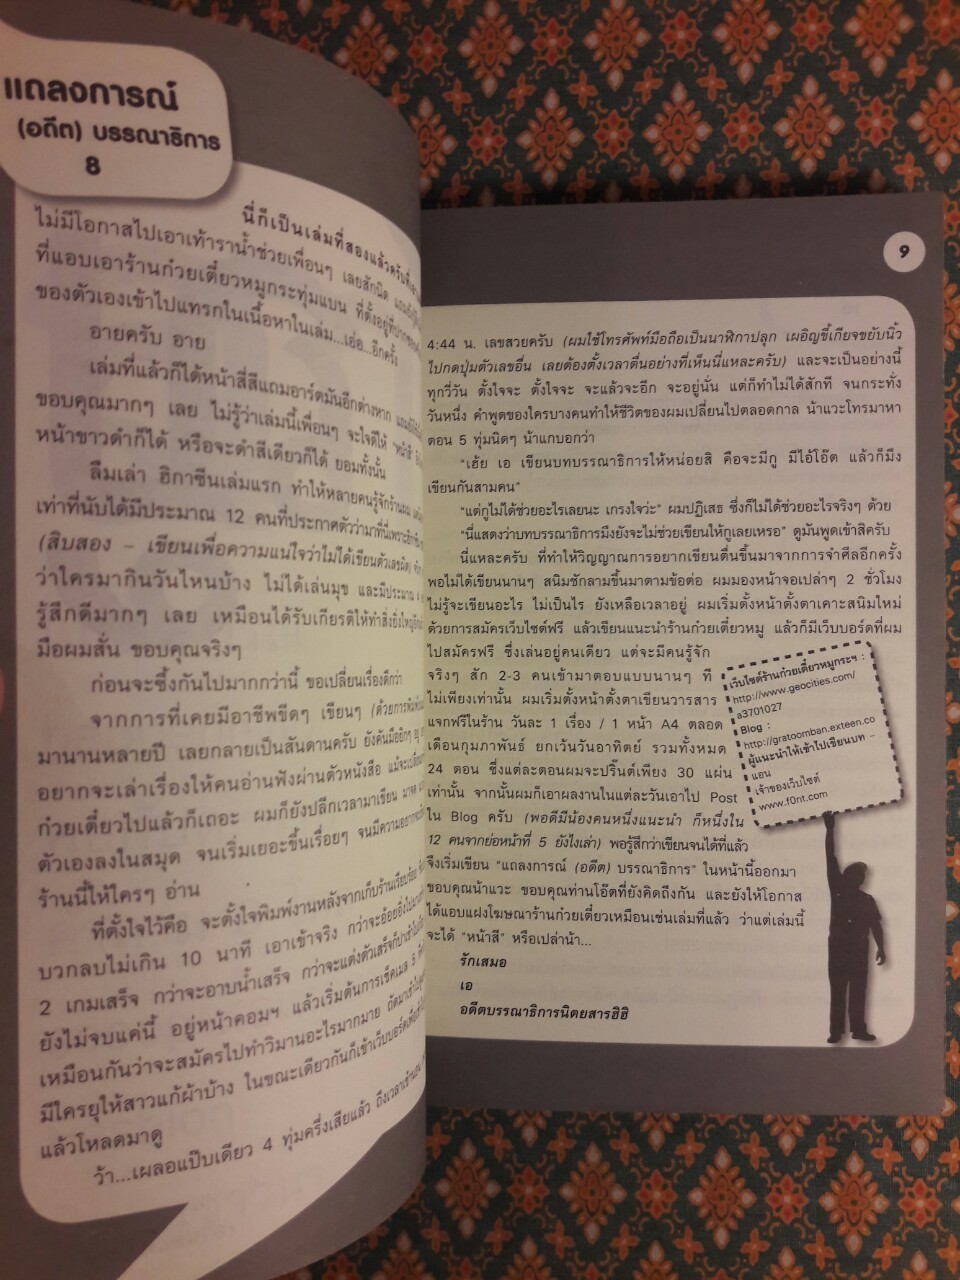 แถลงการณ์
(อดีต) บรรณาธิการ
8
นี่ก็เป็นเล่มที่สองแล้วครับที่
ไม่มีโอกาสไปเอาเท้าราน้ำช่วยเพื่อนๆ เลยสักนิด
ที่แอบเอาร้านก๋วยเตี๋ยวหมูกระทุ่มแบน ที่ตั้งอยู่ที่
ของตัวเองเข้าไปแทรกในเนื้อหาในเล่ม...เอ่อ...อีกครั้ง
อายครับ อาย
เล่มที่แล้วก็ได้หน้าสี่สีแถมอาร์ตมันอีกต่างหาก
ขอบคุณมากๆ เลย ไม่รู้ว่าเล่มนี้เพื่อนๆ จะใจดีให้ "หน้าสี"
หน้าขาวดำก็ได้ หรือจะดำสีเดียวก็ได้ ยอมทั้งนั้น
ลืมเล่า ฮิกาซีนเล่มแรก ทำให้หลายคนรู้จักร้านผม
เท่าที่นับได้มีประมาณ 12 คนที่ประกาศตัวว่ามาที่นี่เพราะ
(สิบสอง – เขียนเพื่อความแน่ใจว่าไม่ได้เขียนตัวเลขผิด)
ว่าใครมากินวันไหนบ้าง ไม่ได้เล่นมุข และมีประมาณ
รู้สึกดีมากๆ เลย เหมือนได้รับเกียรติให้ทำสิ่งยิ่งใหญ่
มือผมสั่น ขอบคุณจริงๆ
ก่อนจะซึ้งกันไปมากกว่านี้ ขอเปลี่ยนเรื่องดีกว่า
จากการที่เคยมีอาชีพขีดๆ เขียนๆ
มานานหลายปี เลยกลายเป็นสันดานครับ ยังคันมือยิกๆ
อยากจะเล่าเรื่องให้คนอ่านฟังผ่านตัวหนังสือ
ก๋วยเตี๋ยวไปแล้วก็เถอะ ผมก็ยังปลีกเวลามาเขียน
ตัวเองลงในสมุด จนเริ่มเยอะขึ้นเรื่อยๆ จนมีความอยาก
ร้านนี้ให้ใครๆ อ่าน
ที่ตั้งใจไว้คือ จะตั้งใจพิมพ์งานหลังจากเก็บร้านเรียบร้อย
บวกลบไม่เกิน 10 นาที เอาเข้าจริง
2 เกมเสร็จ กว่าจะอาบน้ำเสร็จ กว่าจะแต่งตัวเสร็จ
ยังไม่จบแค่นี้ อยู่หน้าคอมฯ แล้วเริ่มต้นการเช็คเมล 5
เหมือนกันว่าจะสมัครไปทำวิมานอะไรมากมาย
มีใครยุให้สาวแก้ผ้าบ้าง ในขณะเดียวกันก็เข้าเว็บบอร์ด
แล้วโหลดมาดู
ว้า...เผลอแป๊บเดียว 4 ทุ่มครึ่งเสียแล้ว
9
4:44 น. เลขสวยครับ (ผมใช้โทรศัพท์มือถือเป็นนาฬิกาปลุก เผอิญขี้เกียจขยับนิ้ว
ไปกดปุ่มตัวเลขอื่น เลยต้องตั้งเวลาตื่นอย่างที่เห็นนี่แหละครับ) และจะเป็นอย่างนี้
ทุกวี่วัน ตั้งใจจะ ตั้งใจจะ จะแล้วจะอีก จะอยู่นั่น แต่ก็ทำไม่ได้สักที จนกระทั่ง
วันหนึ่ง คำพูดของใครบางคนทำให้ชีวิตของผมเปลี่ยนไปตลอดกาล น้าแวะโทรมาหา
ตอน 5 ทุ่มนิดๆ น้าแกบอกว่า
"เฮ้ย เอ เขียนบทบรรณาธิการให้หน่อยสิ คือจะมีกู มีไอ้โอ๊ต แล้วก็มึง
เขียนกันสามคน"
"แต่กูไม่ได้ช่วยอะไรเลยนะ เกรงใจว่ะ" ผมปฏิเสธ ซึ่งก็ไม่ได้ช่วยอะไรจริงๆ ด้วย
"นี่แสดงว่าบทบรรณาธิการมึงยังจะไม่ช่วยเขียนให้กูเลยเหรอ" ดูมันพูดเข้าสิครับ
นี่แหละครับ ที่ทำให้วิญญาณการอยากเขียนตื่นขึ้นมาจากการจำศีลอีกครั้ง
พอไม่ได้เขียนนานๆ สนิมชักลามขึ้นมาตามข้อต่อ ผมมองหน้าจอเปล่าๆ 2 ชั่วโมง
ไม่รู้จะเขียนอะไร ไม่เป็นไร ยังเหลือเวลาอยู่ ผมเริ่มตั้งหน้าตั้งตาเคาะสนิมใหม่
ด้วยการสมัครเว็บไซต์ฟรี แล้วเขียนแนะนำร้านก๋วยเตี๋ยวหมู แล้วก็มีเว็บบอร์ดที่ผม
ไปสมัครฟรี ซึ่งเล่นอยู่คนเดียว แต่จะมีคนรู้จัก
จริงๆ สัก 2-3 คนเข้ามาตอบแบบนานๆ ที
ไม่เพียงเท่านั้น ผมเริ่มตั้งหน้าตั้งตาเขียนวารสาร
แจกฟรีในร้าน วันละ 1 เรื่อง / 1 หน้า A4 ตลอด
เดือนกุมภาพันธ์ ยกเว้นวันอาทิตย์ รวมทั้งหมด
24 ตอน ซึ่งแต่ละตอนผมจะปริ๊นต์เพียง 30 แผ่น
เท่านั้น จากนั้นผมก็เอาผลงานในแต่ละวันเอาไป Post
ใน Blog ครับ (พอดีมีน้องคนหนึ่งแนะนำ ก็หนึ่งใน
12 คนจากย่อหน้าที่ 5 ยังไงเล่า) พอรู้สึกว่าเขียนจนได้ที่แล้ว
จึงเริ่มเขียน "แถลงการณ์ (อดีต) บรรณาธิการ" ในหน้านี้ออกมา
ขอบคุณน้าแวะ ขอบคุณท่านโอ๊ตที่ยังคิดถึงกัน และยังให้โอกาส
ได้แอบแฝงโฆษณาร้านก๋วยเตี๋ยวเหมือนเช่นเล่มที่แล้ว ว่าแต่เล่มนี้
จะได้ "หน้าสี" หรือเปล่าน้า...
รักเสมอ
เอ
อดีตบรรณาธิการนิตยสารฮิฮิ
เว็บไซต์ร้านก๋วยเตี๋ยวหมูกระฯ :
http://www.geocities.com/
a3701027
Blog :
http://gratoomban.exteen.co
ผู้แนะนำให้เข้าไปเขียนบท –
แอน
เจ้าของเว็บไซต์
www.f0nt.com